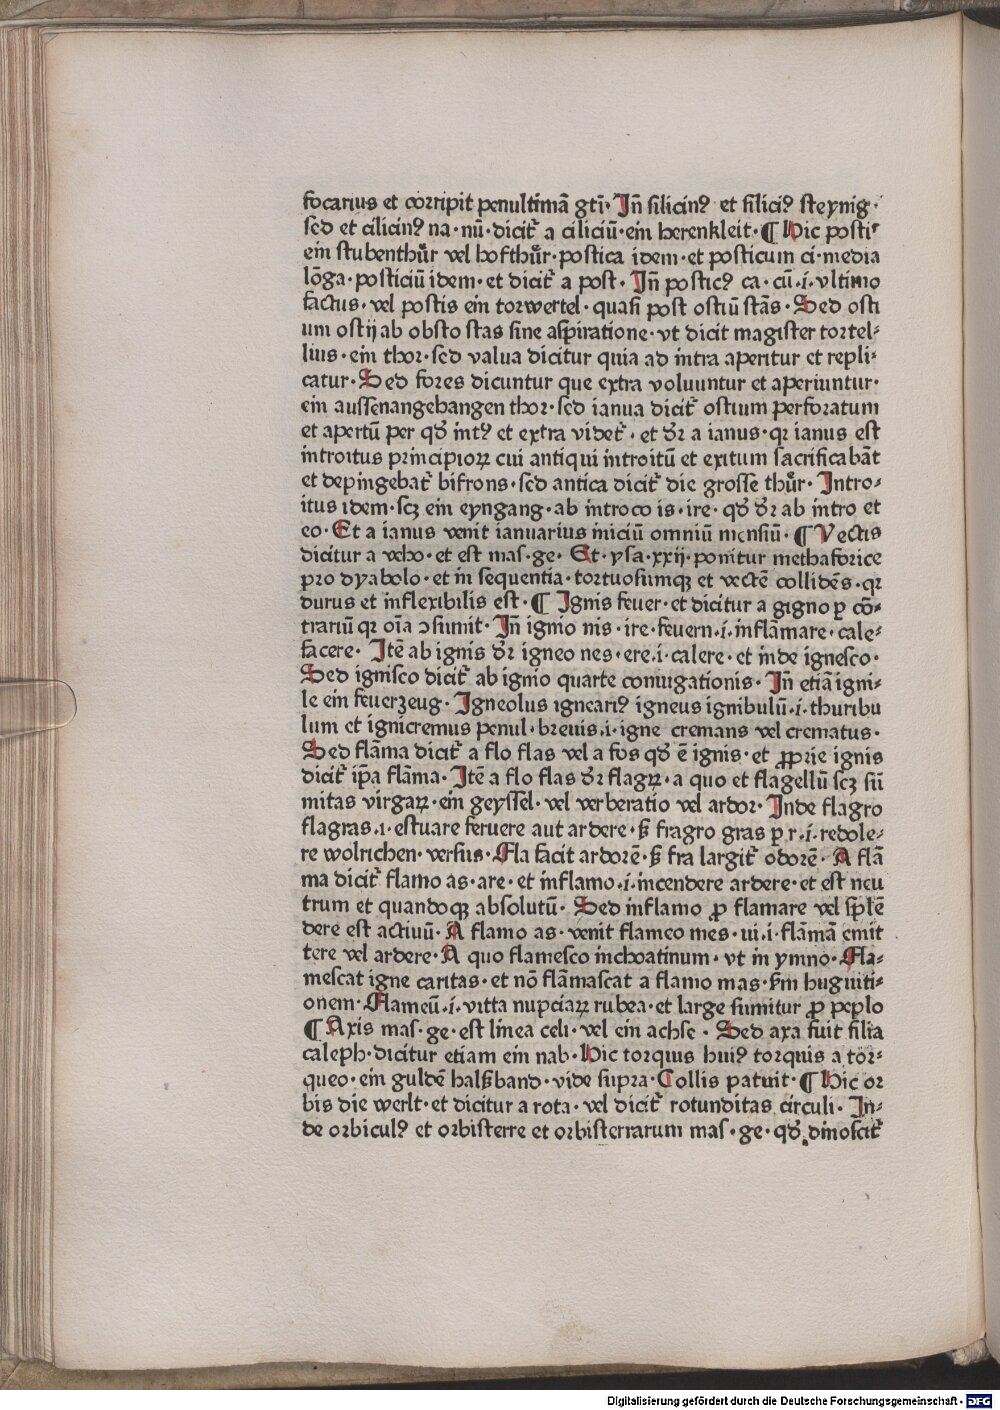 focarius et corripit penultimā gti̅· Jn̄ silicin⁹ et silici⁹ steynig·
sed et cilicin⁹ na·nū·dicit᷑ a ciliciū·ein herenkleit·¶ Hic postis
ein stubenthuͤr vel hofthuͤr·postica idem·et posticum ci·media
lōga·posticiū idem·et dicit᷑ a post· Jn̄ postic⁹ ca·cū·i·vltimo
factus·vel postis ein torwertel·quasi post ostiū stās·Sed osti
um ostij ab obsto stas sine aspiratione·vt dicit magister tortel⸗
lius·ein thor·sed valua dicitur quia ad intra aperitur et repli⸗
catur·Sed fores dicuntur que extra voluuntur et aperiuntur·
ein aussenangehangen thor·sed ianua dicit᷑ ostium perforatum
et apertū per qd̄ int⁹ et extra videt᷑·et dr̄ a ianus·qr ianus est
introitus principioꝝ cui antiqui introitū et exitum sacrificabāt
et depingebat᷑ bifrons·sed antica dicit᷑ die grosse thuͤr·Intro⸗
itus idem·scꝫ ein eyngang·ab introeo is·ire·qd̄ dr̄ ab intro et
eo·Et a ianus venit ianuarius iniciū omniū mensiū·¶ Vectis
dicitur a veho·et est mas·ge· Et·ysa·xxij·ponitur methaforice
pro dyabolo·et in sequentia·tortuosumqꝫ et vectē collidēs·qr
durus et inflexibilis est·¶ Ignis feuer·et dicitur a gigno ꝑ cō⸗
trariū qr oīa ↄsumit·Jn̄ ignio nis·ire·feuern·i·inflāmare·cale⸗
facere· Itē ab ignis dr̄ igneo nes·ere·i·calere·et inde ignesco·
Sed ignisco dicit᷑ ab ignio quarte coniugationis·Jn̄ etiā igni⸗
le ein feuerzeug·Igneolus igneari⁹ igneus ignibulū·i·thuribu
lum et ignicremus penul·breuis·i·igne cremans vel crematus·
Sed flāma dicit᷑ a flo flas vel a fos qd̄ ē ignis·et ꝓprie ignis
dicit᷑ ip̄a flāma·Itē a flo flas dr̄ flagꝝ·a quo et flagellū scꝫ sū
mitas virgaꝝ·ein geyssel·vel verberatio vel ardor·Inde flagro
flagras·i·estuare feruere aut ardere·s̄ fragro gras ꝑ r·i·redole⸗
re wolrichen·versus·Fla facit ardorē·s̄ fra largit᷑ odorē·A flā
ma dicit᷑ flamo as·are·et inflamo·i·incendere ardere·et est neu
trum et quandoqꝫ absolutū· Sed inflamo ꝓ flamare vel splē
dere est actiuū·A flamo as·venit flameo mes·ui·i·flāmā emit
tere vel ardere·A quo flamesco inchoatinum·vt in ymno·Fla⸗
mescat igne caritas·et nō flāmascat a flamo mas·s̄m huguiti⸗
onem·Flameū·i·vitta nupciaꝝ rubea·et large sumitur ꝓ peplo
¶ Axis mas·ge·est linea celi·vel ein achse·Sed axa fuit filia
caleph·dicitur etiam ein nab·Hic torquis hui⁹ torquis a tor⸗
queo·ein guldē halßband·vide supra·Collis patuit·¶ Hic or
bis die werlt·et dicitur a rota·vel dicit᷑ rotunditas circuli·In⸗
de orbicul⁹ et orbisterre et orbisterrarum mas·ge·qd̄ dinoscit᷑
Digitalisierung gefördert durch die Deutsche Forschungsgemeinschaft - DFG